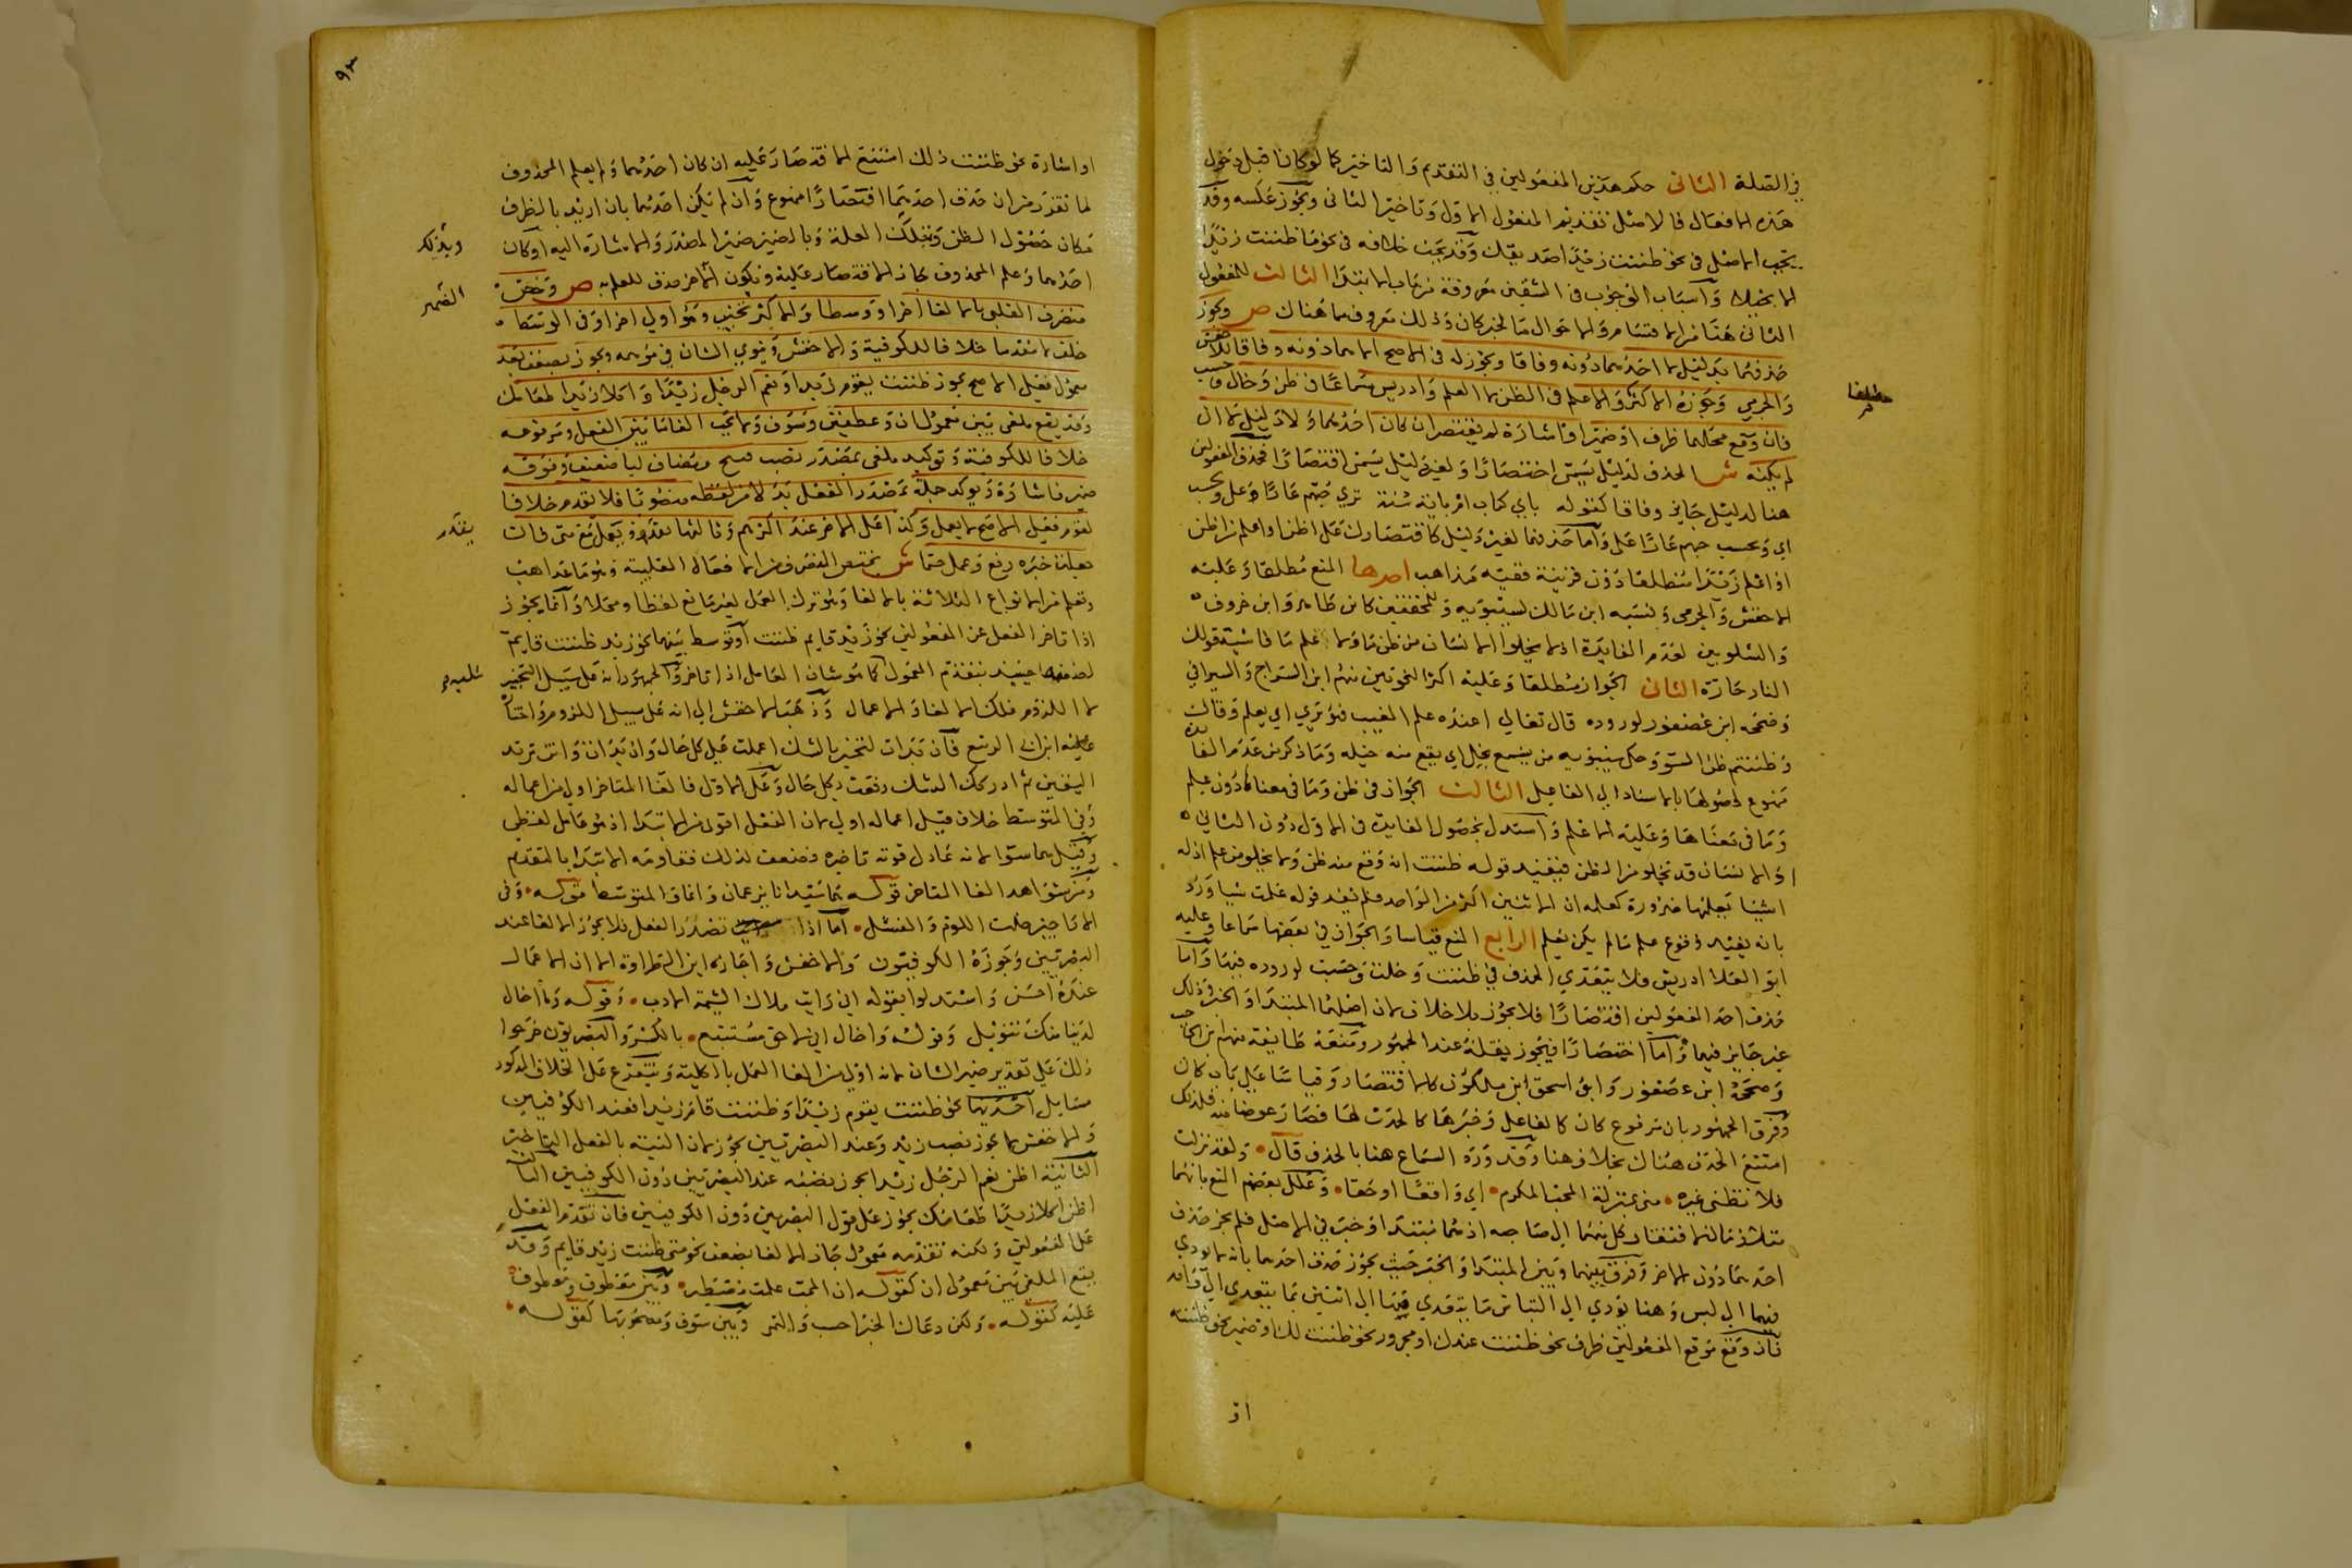 في الصلة الثاني حكم هذين المفعولين في التقديم والتاخير كما لو كانا قبل دخول
هذه الافعال فالاصل تقديم المفعول الاول وتاخير الثاني ويجوز عكسه وقد
يجب الاصل في نحو ظننت زيدا صديقك وقد يجب خلافه في نحو ما ظننت زيدا
الا بخيلا واسباب الوجوب في الشقين معروفة من باب الابتدا الثالث للمفعول
الثاني هنا من الاقسام والاحوال ما لخبر كان وذلك معروف مما هناك ص ويجوز
حذفهما بدليل لا احدهما دونه وفاقا ويجوز له في الاصح لا هما دونه وفاقا للاخفش
والجرمي وجوزه الاكثر والاعلم في الظن لا العلم وادريس سماعا في ظن وخال وحسب
فان وقع محلهما ظرف او ضمير او اشارة لم يقتصر ان كان احدهما ولا دليل لا ان
لم يكنه ش الحذف لدليل يسمى اختصارا ولغير دليل يسمى اقتصارا فحذف المفعولين
هنا لدليل جايز وفاقا كقوله باي كتاب ام باية سنة تري حبهم عارا علي وتحسب
اي وتحسب حبهم عارا علي واما حذفهما لغير دليل كاقتصارك على اظن او اعلم من اظن
او اعلم زيدا منطلقا دون قرينة ففيه مذاهب احدها المنع مطلقا وعليه
الاخفش والجرمي ونسبه ابن مالك لسيبويه وللمحققين كابن طاهر وابن خروف
والشلوبين لعدم الفايدة اذ لا يخلوا الانسان من ظن ما ولا علم ما فاشبه قولك
النار حارة الثاني الجواز مطلقا وعليه اكثر النحويين منهم ابن السراج والسيرافي
وصححه ابن عصفور لوروده قال تعالي اعنده علم الغيب فهو يري اي يعلم وقال
وظننتم ظن السوء وحكى سيبويه من يسمع يخل اي يقع منه خيله وما ذكر من عدم الفايدة
ممنوع لحصولها بالاسناد الي الفاعل الثالث الجواز في ظن وما في معناها دون علم
وما في معناها وعليه الاعلم واستدل بحصول الفايدة في الاول دون الثاني
اذ الانسان قد يخلو من الظن فيفيد قوله ظننت انه وقع منه ظن ولا يخلو من علم اذ له
اشيا يعلمها ضرورة كعلمه ان الاثنين اكثر من الواحد فلم يفد قوله علمت شيا ورد
بانه يفيد وقوع علم ما لم يكن يعلم الرابع المنع قياسا والجواز في بعضها سماعا وعليه
ابو العلا ادريس فلا يتعدي الحذف في ظننت وخلت وحسبت لوروده فيها واما
حذف احد المفعولين اقتصارا فلا يجوز بلا خلاف لان اصلهما المبتدا والخبر وذلك
غير جايز فيهما واما اختصارا فيجوز بقلة عند الجمهور ومنعه طايفة منهم ابن الحاجب
وصححه ابن عصفور وابو اسحق ابن ملكون كالاقتصار وقياسا على باب كان
وفرق الجمهور بان مرفوع كان كالفاعل وخبرها كالحدث لها فصار عوضا منه فلذلك
امتنع الحذف هناك بخلاف هنا وقد ورد السماع هنا بالحذف قال ولقد نزلت
فلا تظني غيره مني بمنزلة المحب المكرم اي واقعا او حقا وعلل بعضهم المنع بانهما
متلازمان لافتقار كل منهما الى صاحبه اذ هما مبتدا وخبر في الاصل فلم يجز حذف
احدهما دون الاخر وفرق بينهما وبين المبتدا والخبر حيث يجوز حذف احدهما بانه لا يودي
فيهما الى لبس وهنا يودي الى التباس ما يتعدي منها الى اثنين بما يتعدي الى واحد
فان وقع موقع المفعولين ظرف نحو ظننت عندك او مجرور نحو ظننت لك او ضمير نحو ظننته
او
مطلقا
٩٣
او اشارة نحو ظننت ذلك امتنع الاقتصار عليه ان كان احدهما ولم يعلم المحذوف
لما تقرر من ان حذف احدهما اقتصارا ممنوع وان لم يكن احدهما بان اريد بالظرف
مكان حصول الظن وبذلك العلة وبالضمير ضمير المصدر والاشارة اليه او كان
احدهما وعلم المحذوف جاز الاقتصار عليه ويكون الاخر حذف للعلم به ص وتختص
متصرف القلبي بالالغا اخرا ووسطا والاكثر تخيير وهو اولى اخرا وفي الوسط
خلف لا متقدما خلافا للكوفية والاخفش وينوي الشان في موهمه ويجوز بضعف بعد
معمول فقيل الاصح يجوز ظننت يقوم زيدا ونعم الرجل زيدا واكلا زيدا طعامك
وقد يقع ملغى بين معمولى ان وعطفين وسوف ولا يجب الغا ما بين الفعل ومرفوعه
خلافا للكوفية وتوكيد ملغى بمصدر نصب قبيح ومضاف ليا ضعيف وفوقه
ضمير فاشارة ويوكد جملة بمصدر الفعل بدلا من لفظه منصوبا فلا يقدم خلافا
لقوم فقيل الاصح لا يعمل وكذا اعمل الاخر عند اكثرهم وثالثها
جعلت خبره رفع وعمل حتما ش يختص المتصرف من الافعال القلبية وهو ما عدا هب
وتعلم من الانواع الثلاثة بالالغا وهو ترك العمل لغير مانع لفظا ومحلا وانما يجوز
اذا تاخر الفعل عن المفعولين نحو زيد قايم ظننت او توسط بينهما نحو زيد ظننت قايم
لضعفه حينيذ بتقدم المعمول كما هو شان العامل اذا تاخر والجمهور انه على سبيل التخيير
لا اللزوم فلك الالغا والاعمال وذهب الاخفش الى انه على سبيل اللزوم واختاره
ابن ابي الربيع فان بدات لتخبر بالشك اعملت على كل حال وان بدات وانت تريد
اليقين ثم ادركك الشك رفعت بكل حال وعلى الاول فالغا المتاخر اولى من اعماله
وفي المتوسط خلاف قيل اعماله اولى لان الفعل اقوى من الابتدا اذ هو عامل لفظي
وقيل هما سوا لانه عادل قوته تاخيره فضعف لذلك فقاومه الابتدا بالتقدم
ومن شواهد الغا المتاخر قوله هما سيدانا يزعمان والغا المتوسط قوله وفي
الاراجيز خلت اللوم والفشل اما اذا تصدر الفعل فلا يجوز الالغا عند
البصريين وجوزه الكوفيون والاخفش واجازه ابن الطراوة الا ان الاعمال
عنده احسن واستدلوا بقوله اني رايت ملاك الشيمة الادب وقوله وما اخال
لدينا منك تنويل وقوله واخال اني لاحق مستتبع بالكسر والبصريون خرجوا
ذلك على تقدير ضمير الشان لانه اولى من الغا العمل بالكلية ويتفرع على الخلاف المذكور
مسايل احديها نحو ظننت يقوم زيدا وظننت قام زيدا فعند الكوفيين
والاخفش لا يجوز نصب زيد وعند البصريين يجوز لان النية بالفعل التاخير
الثانية اظن نعم الرجل زيدا يجوز نصبه عند البصريين دون الكوفيين الثالثة
اظن اكلا زيدا طعامك يجوز على قول البصريين دون الكوفيين فان تقدم الفعل
على المفعولين ولكنه تقدمه معمول جاز الالغا بضعف نحو متى ظننت زيد قايم وقد
يقع الملغى بين معمولى ان كقوله ان المحب علمت مصطبر وبين معطوف ومعطوف
عليه كقوله ولكن دعاك الخبز احسب والتمر وبين سوف ومصحوبها كقوله
وبذلك
الضمير
يقدر